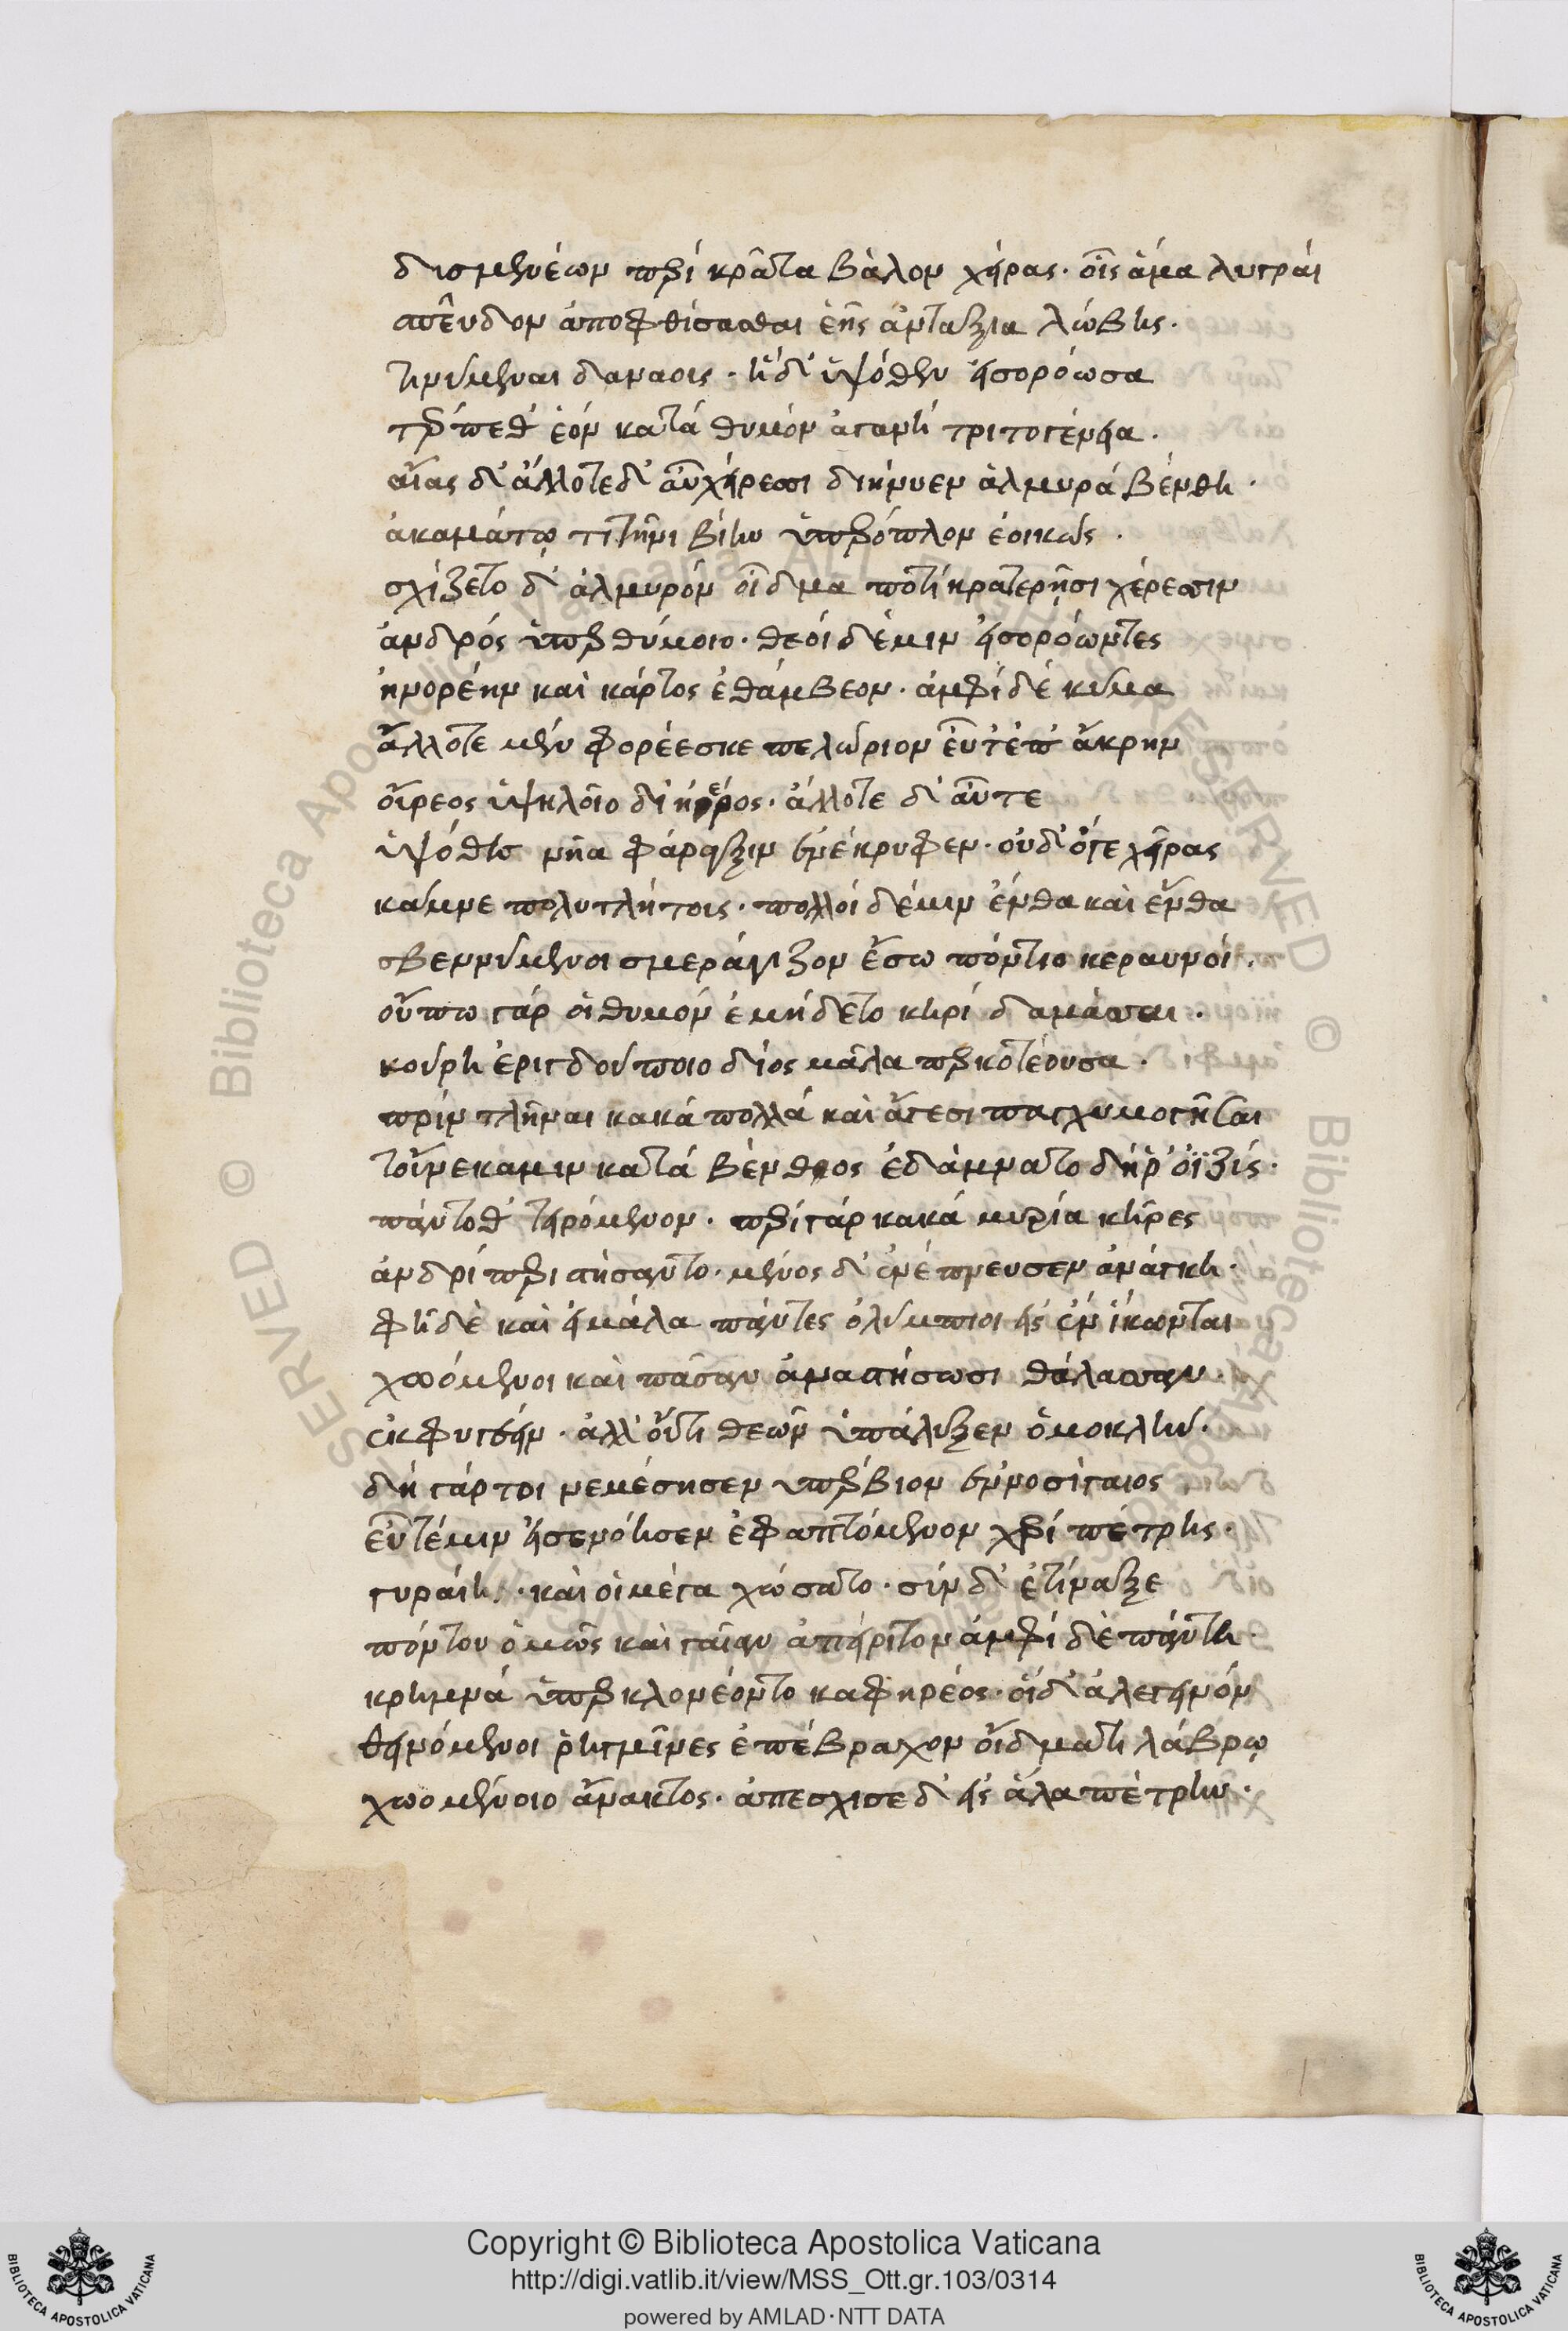 δυσμενέων περὶ κρᾶτα βάλον χεῖρας· οἷς ἅμα λυγραὶ
σπεῦδον ἀποφθίσασθαι ἑῆς ἀντάξια λώβης·
τινύμεναι δαναοις· ἡ δ' ὑψόθεν εἰσορόωσα
τέρπεθ' ἑὸν κατὰ θυμὸν ἀγανὴ τριτογένεια·
αἴας δ' ἄλλοτε δ' αὖ χείρεσσι διήνυεν ἁλμυρὰ βένθη·
ἀκαμάτῳ τιτῆνι βίην ὑπέροπλον ἐοικώς·
σχίζετο δ' ἁλμυρὸν οἶδμα ποτὶ κρατερῇσι χέρεσσιν
ἀνδρὸς ὑπερθύμοιο· θεοὶ δέ μιν εἰσορόωντες
ἠνορέην καὶ κάρτος ἐθάμβεον· ἀμφὶ δὲ κῦμα
ἄλλοτε μὲν φορέεσκε πελώριον εὖτ' ἐπ' ἄκρην
οὔρεος ὑψηλοῖο δι' ἠέρος· ἄλλοτε δ' αὖτε
ὑψόθεν μῆα φάραγξιν ἐνέκρυφεν· οὐδ' ὅγε χεῖρας
κάμνε πολυτλήτοις· πολλοὶ δέ μιν ἔνθα καὶ ἔνθα
σβεννύμενοι σμεράγιζον ἔσω πόντιο κεραυνοί·
οὔπω γάρ οἱ θυμὸν ἐμήδετο κηρὶ δαμάσσαι·
κούρη ἐριγδούποιο διὸς μάλα περ κοτέουσα·
πρὶν τλῆναι κακὰ πολλὰ καὶ ἄγεσι παγχυμογῆσαι
τοὔνεκα μιν κατὰ βένθεος ἐδάμνατο δὴρ' ὀϊζὺς·
πάντοθ' τειρόμενον· περὶ γὰρ κακὰ μυρία κῆρες
ἀνδρὶ περιστήσαντο· μένος δ' ἐνέπνευσεν ἀνάγκη·
φῆ δὲ καὶ εἰ μάλα πάντες ὀλύμπιοι εἰς ἓν ἵκωνται
χωόμενοι καὶ πᾶσαν ἀναστήσωσι θάλασσαν·
ἐκφυγέειν· ἀλλ' οὔτι θεῶν ὑπάλυξεν ὁμοκλήν·
δὴ γάρ τοι νεμέσησεν ὑπέρβιον ἐννοσίγαιος
εὖτέ μιν εἰσενόησεν ἐφαπτόμενον χερὶ πέτρης·
γυραίη· καὶ οἱ μέγα χώσατο· σὺν δ' ἐτίναξε
πόντον ὁμῶς καὶ γαῖαν ἀπείριτον ἀμφὶ δὲ πάντη·
κρημνὰ ὑπερκλονέοντο καφηρέος· οἱ δ' ἀλεγεινὸν
θεινόμενοι ῥηγμῖνες ἐπέβραχον οἴδματι λάβρῳ
χωομένοιο ἄνακτος· ἀπεσχισε δ' εἰς ἅλα πέτρην·
Copyright © Biblioteca Apostolica Vaticana
http://digi.vatlib.it/view/MSS_Ott.gr.103/0314
powered by AMLAD·NTT DATA